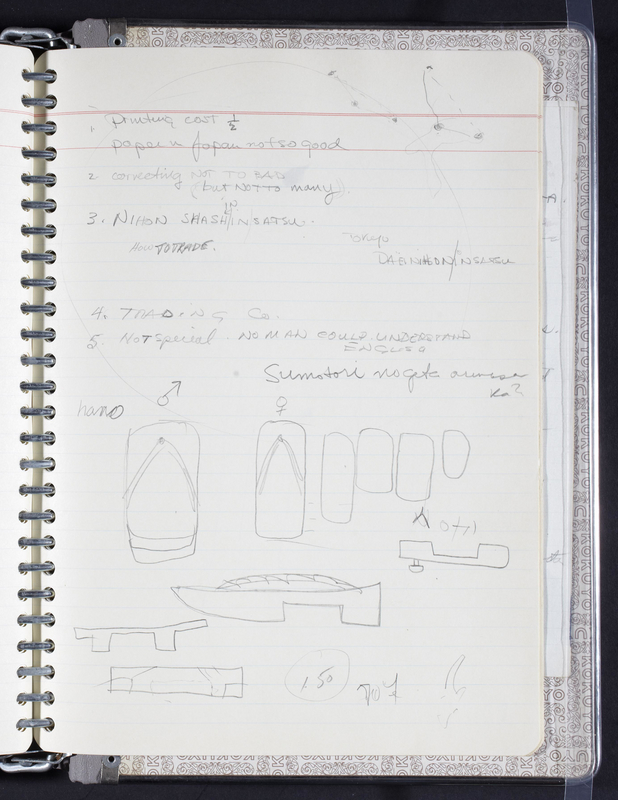 1. printing cost 1/2
paper in Japan not so good
2. correcting NOT TO BAD
(but NOT TO many)
in
3. NIHON SHASHIN INSATSU.
HOW TO TRADE.
TOKYO
DAINIHON INSATSU
4. TRADING Co.
5. NOT special. NO MAN COULD UNDERSTAND
ENGLISH
Sumotori no geta
ka?
hano ♂ ♀
1.50